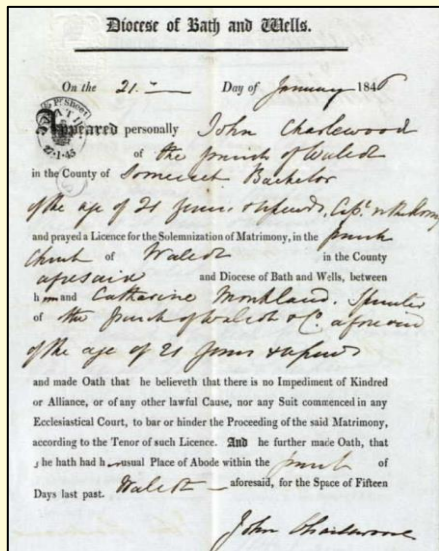 Diocese of Bath and Wells.
On the 21st Day of January 1846
Appeared personally John Charlewood
of the parish of Walcot
in the County of Somerset Bachelor
of the age of 21 years & upwards, Capt. in the Army
and prayed a Licence for the Solemnization of Matrimony, in the parish
Church of Walcot in the County
aforesaid and Diocese of Bath and Wells, between
him and Catharine Monkland. Spinster
of the parish of Walcot & Co. aforesaid
of the age of 21 years & upwards
and made Oath that he believeth that there is no Impediment of Kindred
or Alliance, or of any other lawful Cause, nor any Suit commenced in any
Ecclesiastical Court, to bar or hinder the Proceeding of the said Matrimony,
according to the Tenor of such Licence. And he further made Oath, that
he hath had h usual Place of Abode within the parish of
Walcot aforesaid, for the Space of Fifteen
Days last past.
John Charlewood